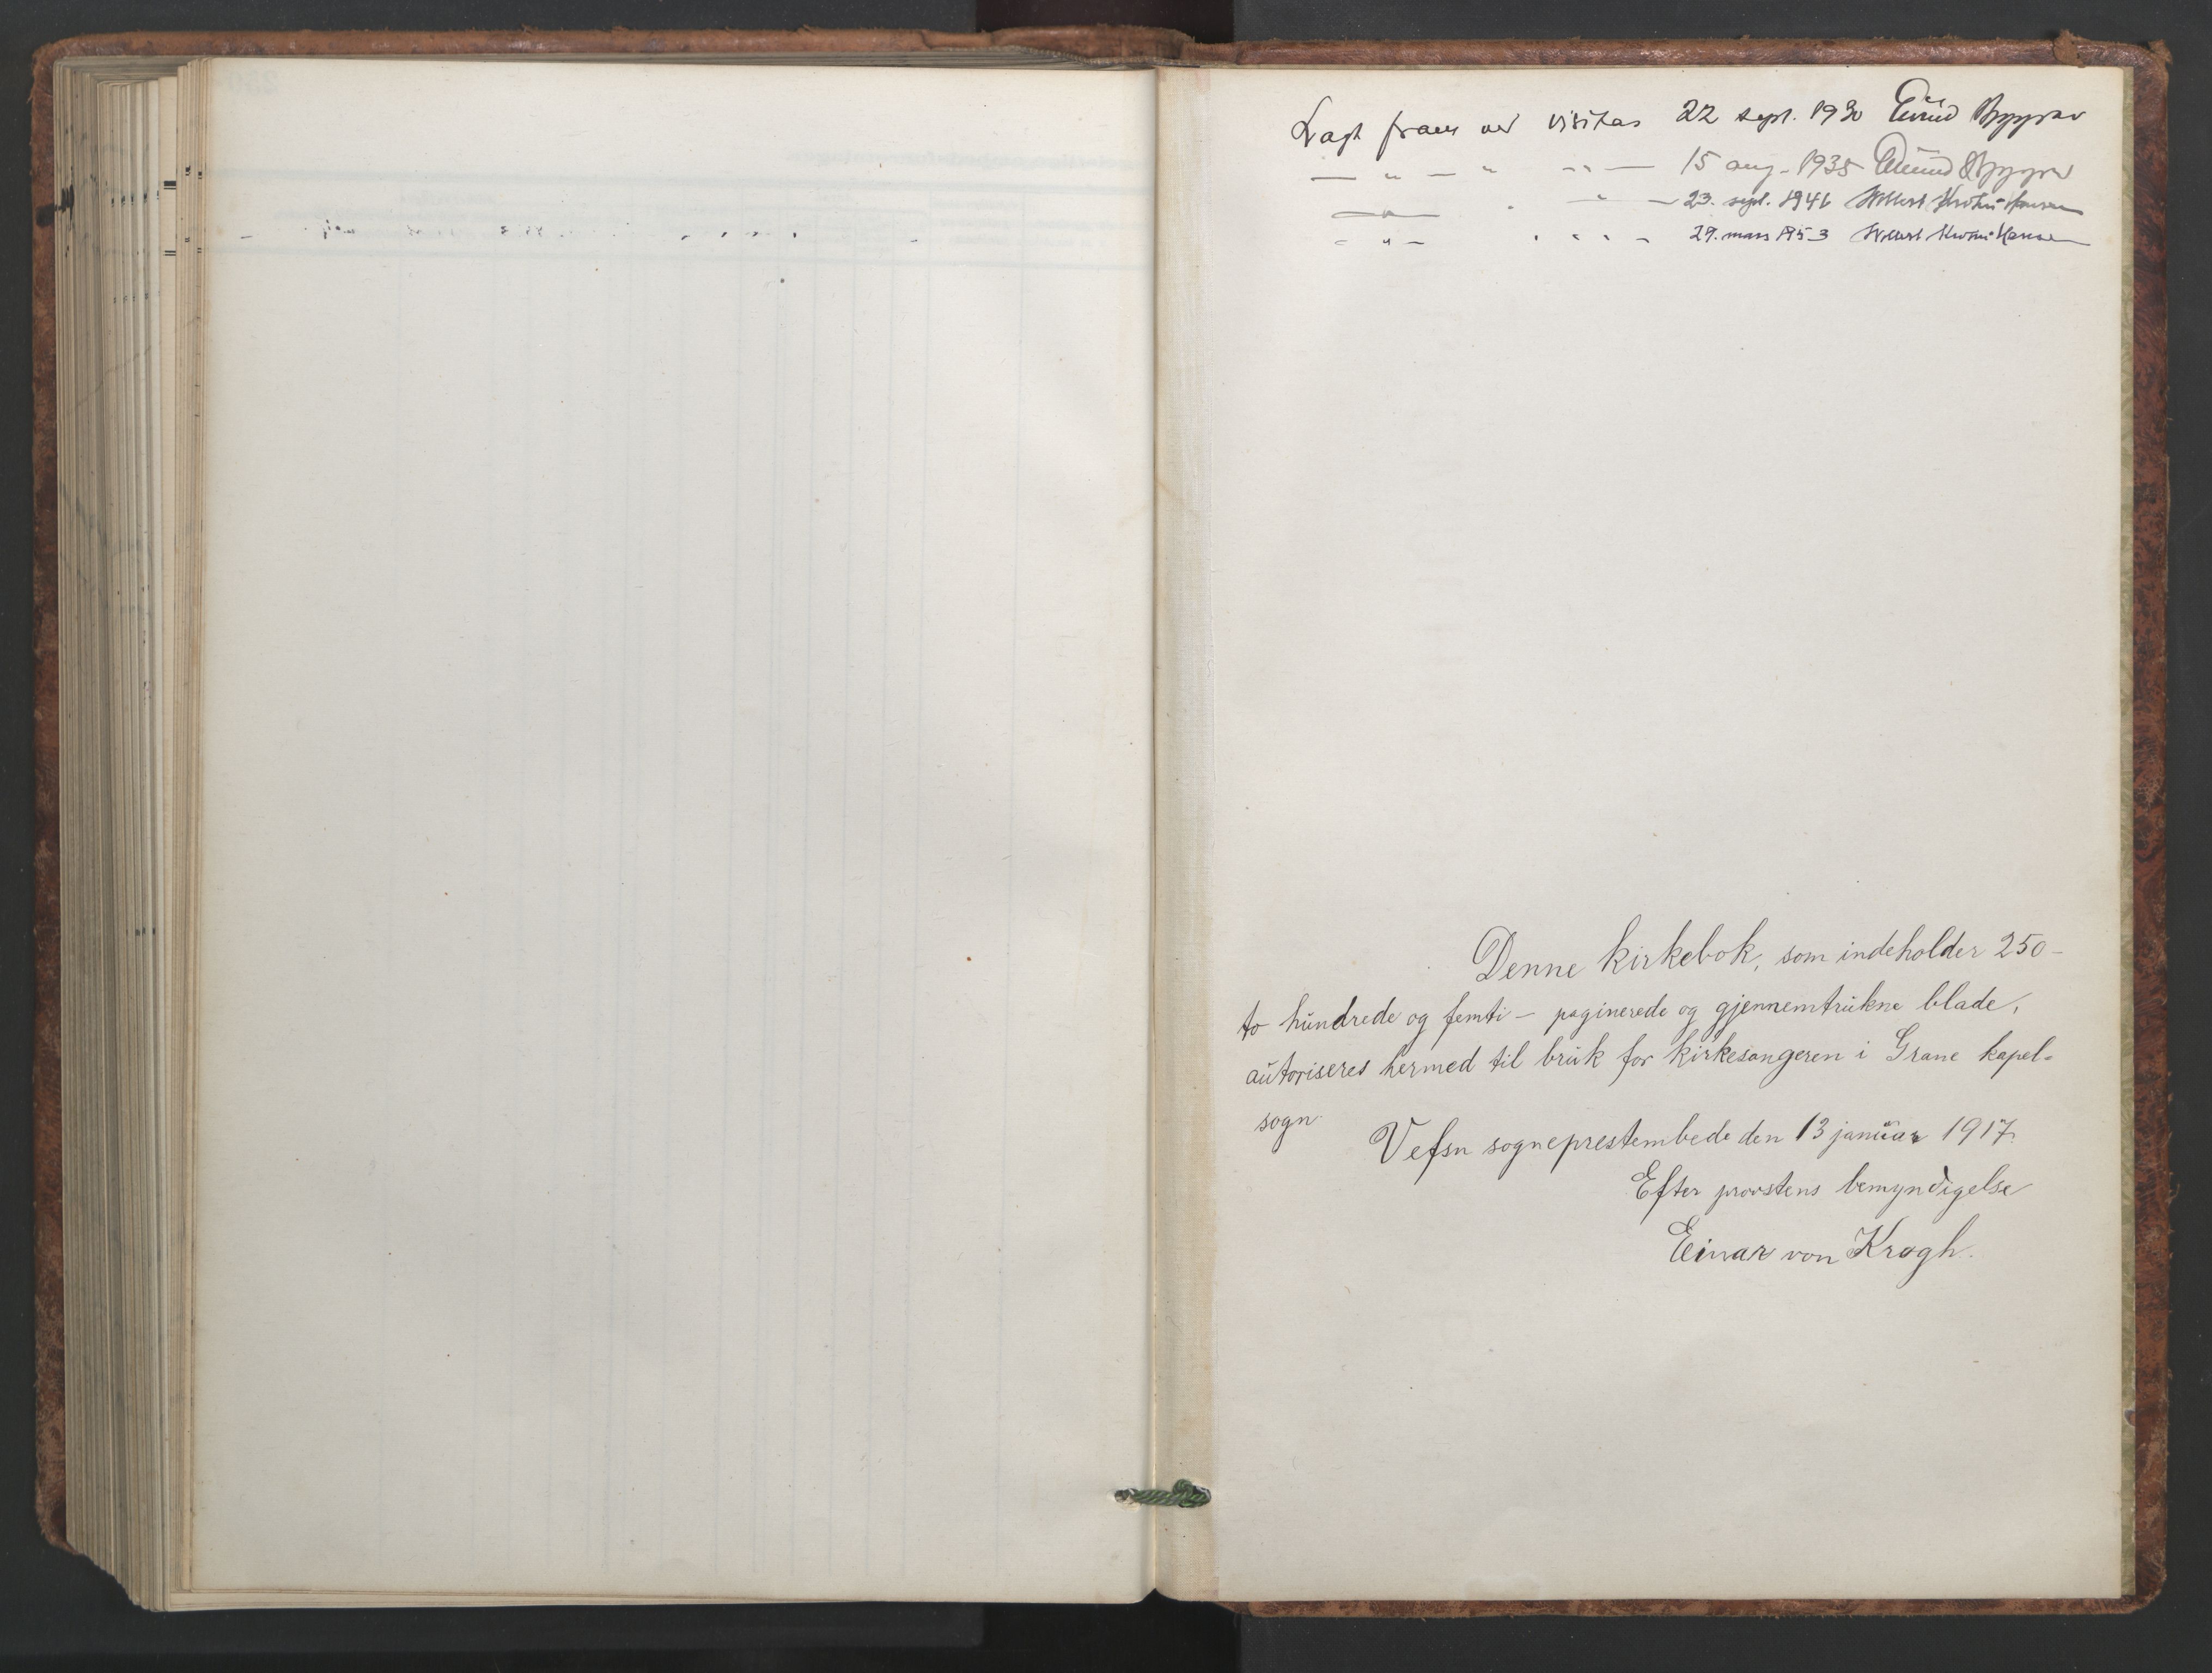 Lagt fram ved visitas 22 sept. 1930 Eivind Berggrav
— " — " " " — 15 aug. 1935 Eivind Berggrav
— " — " " — 23. sept. 1946 Wollert Krohn-Hansen
- " - " " " " - 29. mars 1953 Wollert Krohn-Hansen
Denne kirkebok, som indeholder 250 –
to hundrede og femti – paginerede og gjennemtrukne blade,
autoriseres hermed til bruk for kirkesangeren i Grane kapel-
sogn.
Vefsn sogneprestembede den 13 januar 1917.
Efter provstens bemyndigelse
Einar von Krogh.